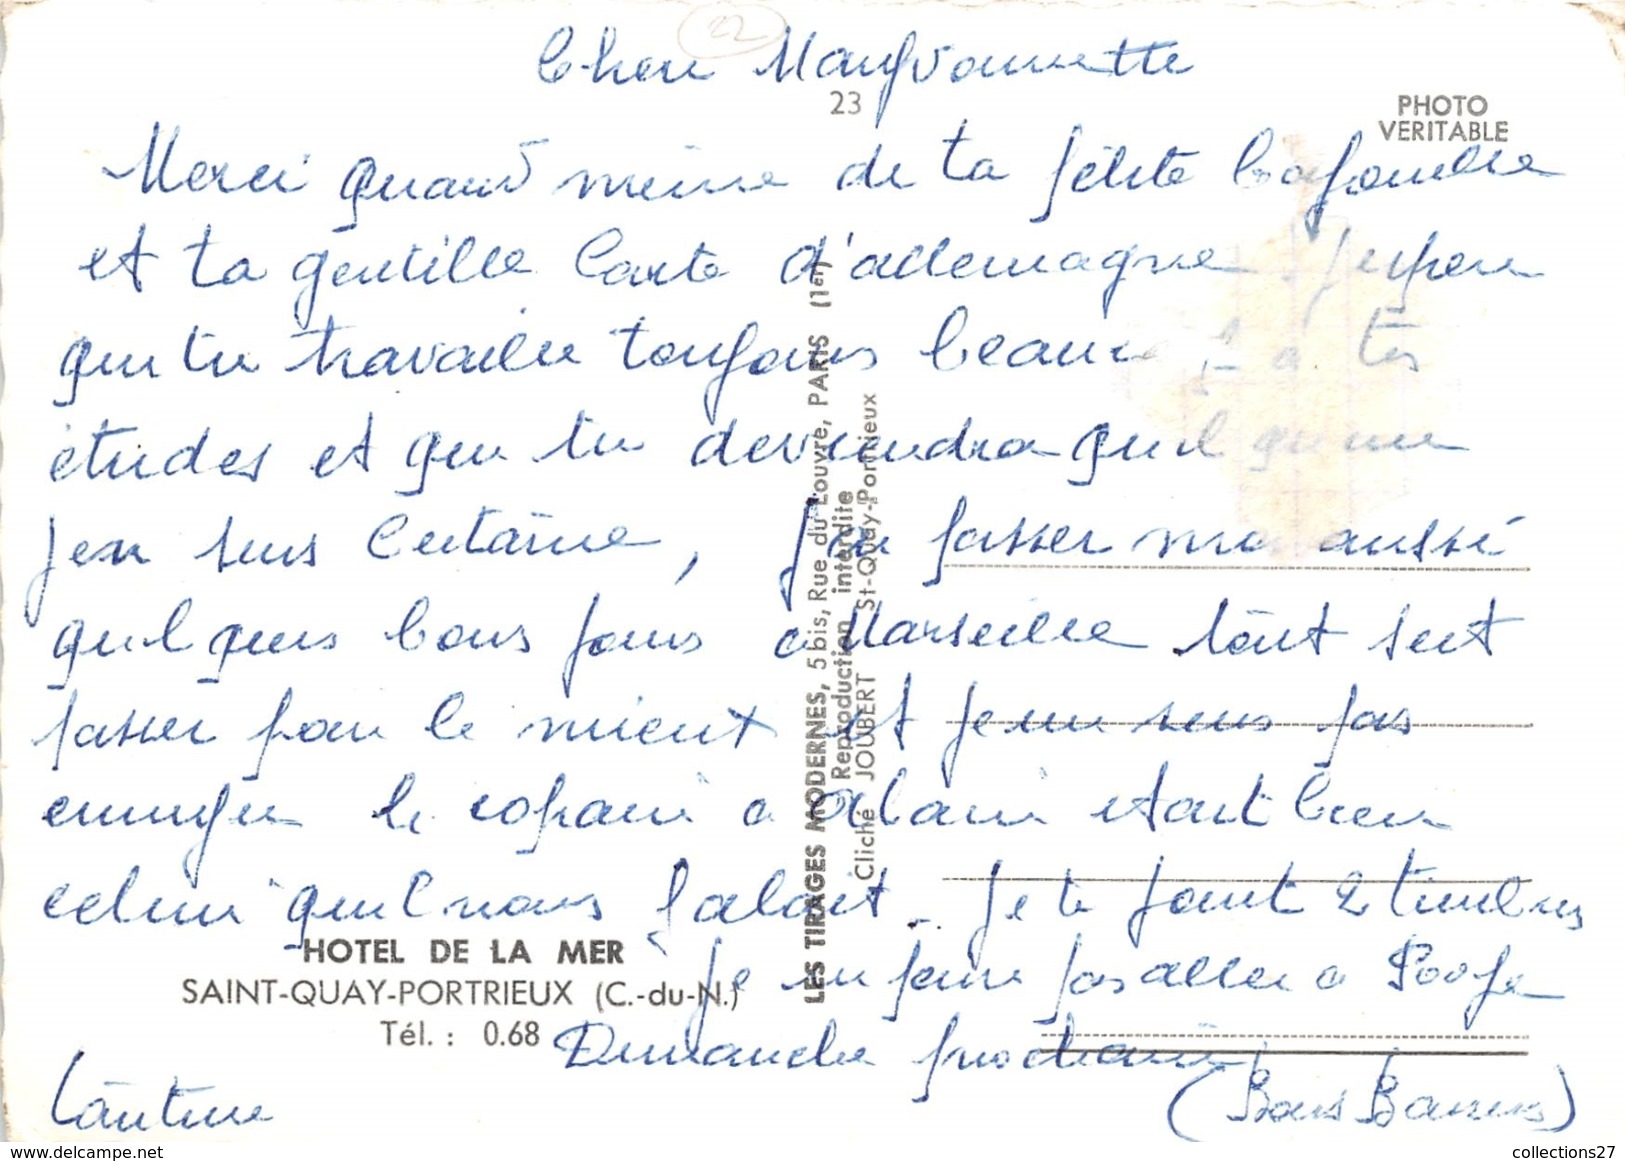 22
Chere Maryvonnette
23
PHOTO
VERITABLE
Merci quand même de ta petite bafouille
et ta gentille Carte d'allemagne Jespere
que tu travaille toujours beaucoup a tes
études et que tu deviendra quelqu'une
jen suis Certaine, J'ai passer moi aussi
quelques bons jours a Marseille tout sest
passer pour le mieux et je me suis pas
ennuyer le copain a alain etant bien
celui quil nous falait. Je te joint 2 timbres
Je
pas aller a
Dimanche prochain
(Bons Baisers)
Tantine
HOTEL DE LA MER
SAINT-QUAY-PORTRIEUX (C.-du-N.)
Tél. : 0.68
LES TIRAGES MODERNES, 5 bis, Rue du Louvre, PARIS (1er)
Reproduction interdite
Cliché JOUBERT St-Quay-Portrieux
collections27